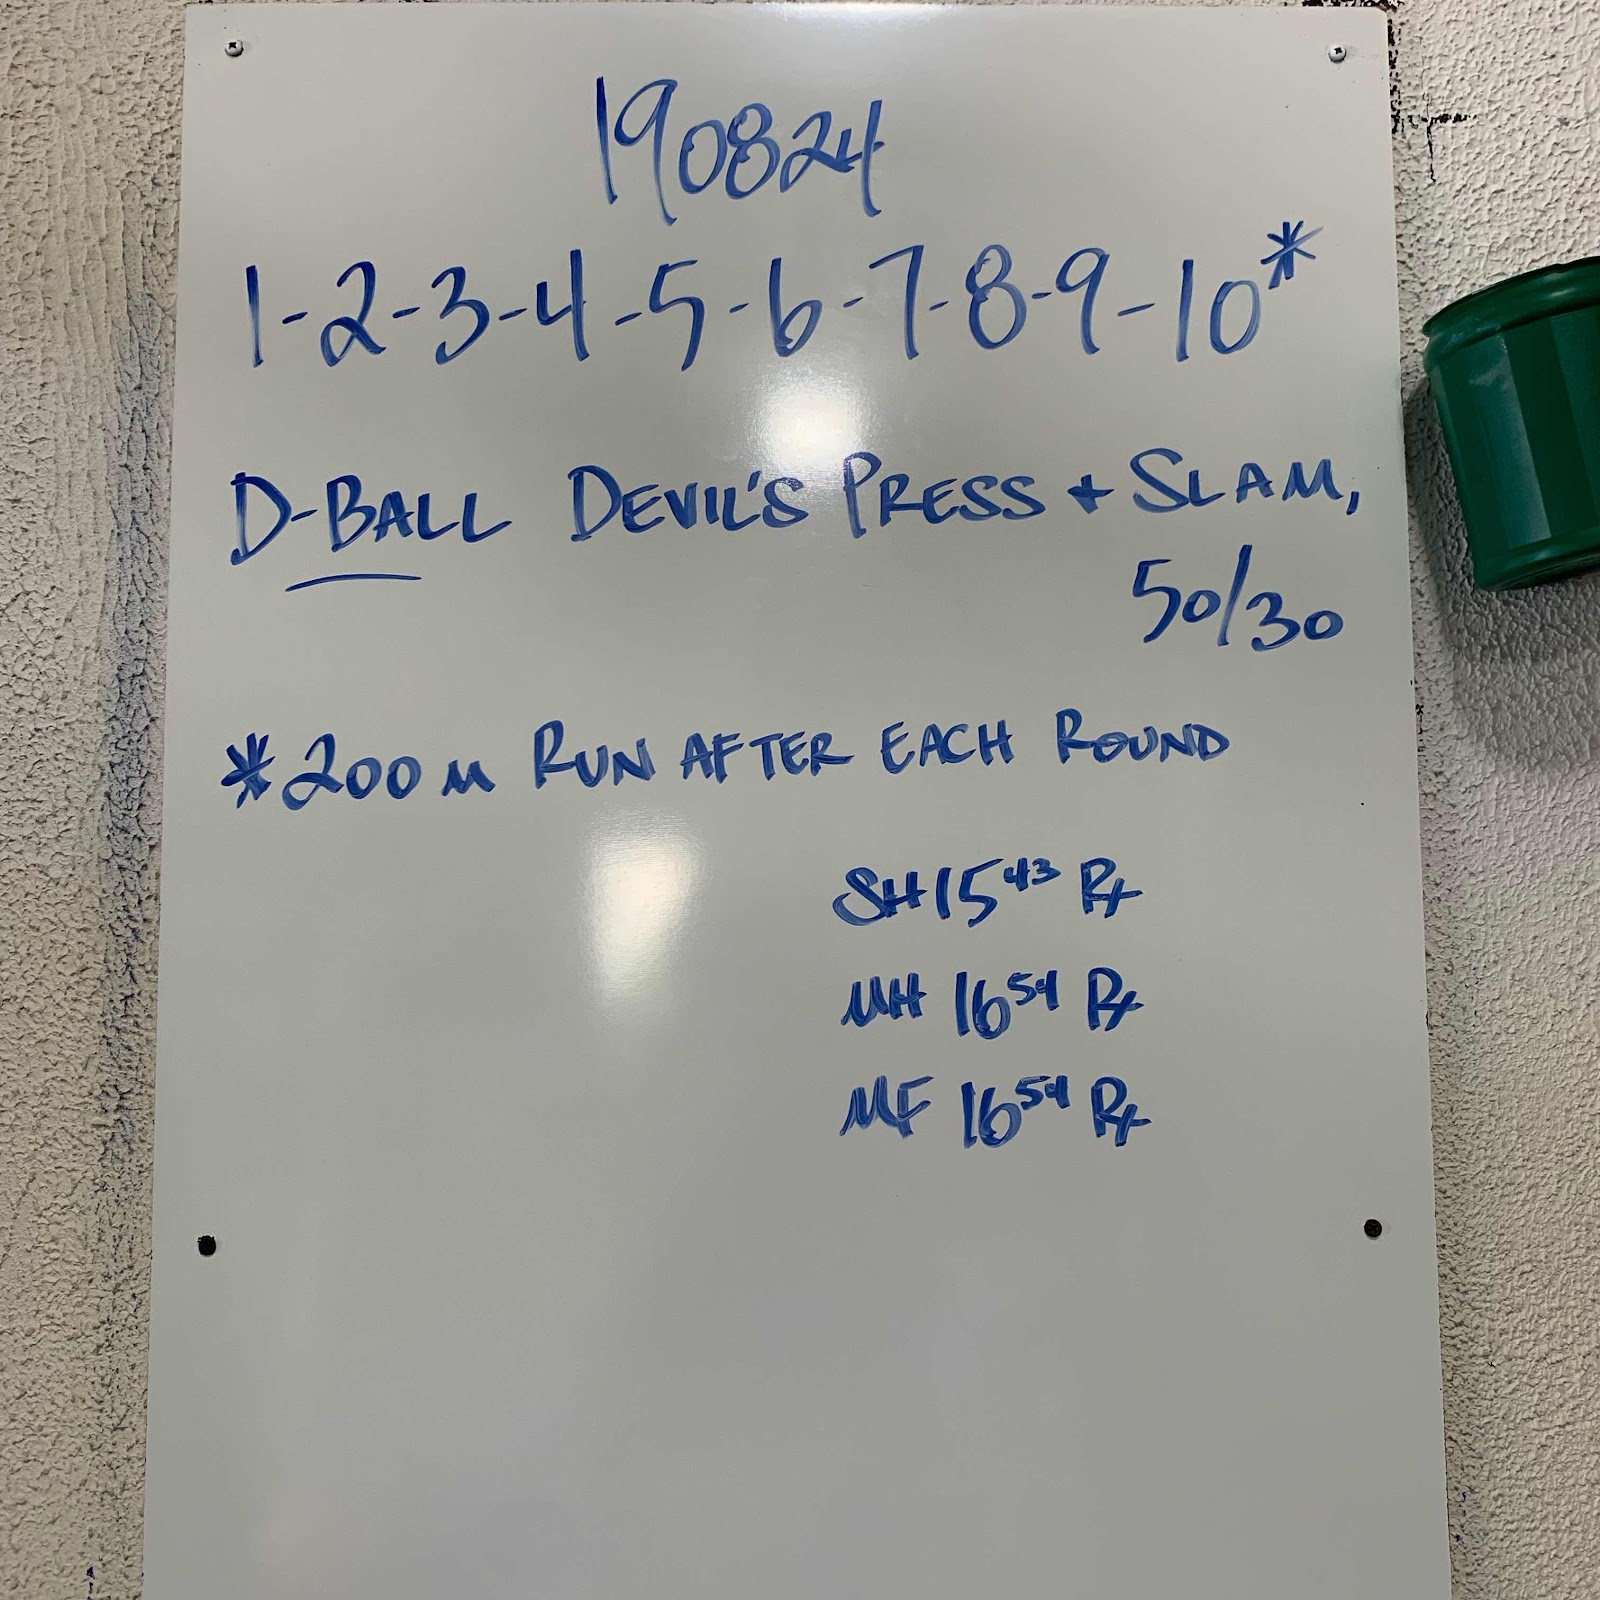 190824
1-2-3-4-5-6-7-8-9-10*
D-BALL DEVIL'S PRESS + SLAM,
50/30
*200 M RUN AFTER EACH ROUND
SH 15 43 Rx
MH 16 54 Rx
MF 16 54 Rx